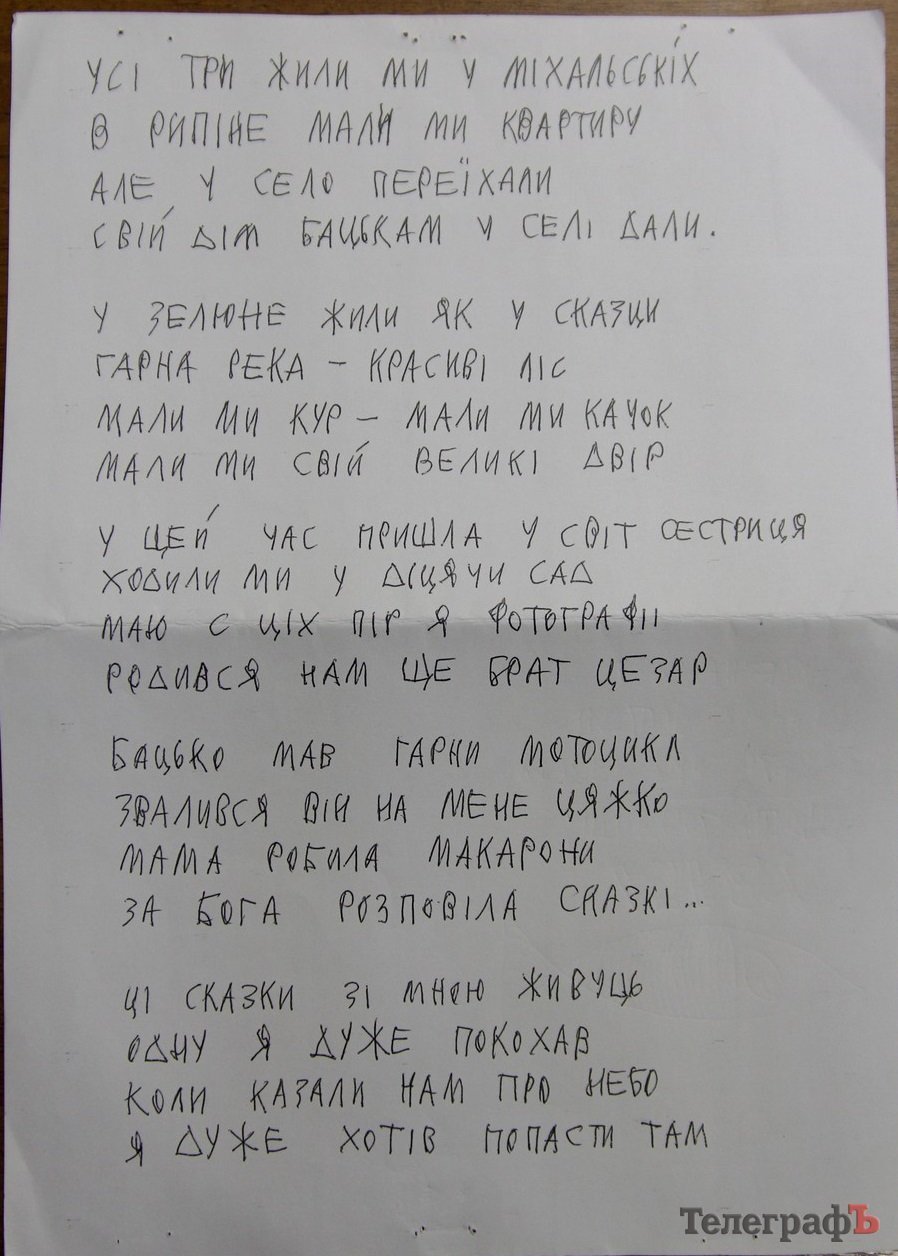 УСІ ТРИ ЖИЛИ МИ У МІХАЛЬСЬКІХ
В РИПІНЕ МАЛИ МИ КВАРТИРУ
АЛЕ У СЕЛО ПЕРЕЇХАЛИ
СВІЙ ДІМ БАЦЬКАМ У СЕЛІ ДАЛИ.
У ЗЕЛЮНЕ ЖИЛИ ЯК У СКАЗЦИ
ГАРНА РЕКА - КРАСИВІ ЛІС
МАЛИ МИ КУР - МАЛИ МИ КАЧОК
МАЛИ МИ СВІЙ ВЕЛИКІ ДВІР
У ЦЕЙ ЧАС ПРИШЛА У СВІТ СЕСТРИЦЯ
ХОДИЛИ МИ У ДІЦЯЧИ САД
МАЮ С ЦІХ ПІР Я ФОТОГРАФІІ
РОДИВСЯ НАМ ЩЕ БРАТ ЦЕЗАР
БАЦЬКО МАВ ГАРНИ МОТОЦИКЛ
ЗВАЛИВСЯ ВІН НА МЕНЕ ЦЯЖКО
МАМА РОБИЛА МАКАРОНИ
ЗА БОГА РОЗПОВІЛА СКАЗКІ...
ЦІ СКАЗКИ ЗІ МНОЮ ЖИВУЦЬ
ОДНУ Я ДУЖЕ ПОКОХАВ
КОЛИ КАЗАЛИ НАМ ПРО НЕБО
Я ДУЖЕ ХОТІВ ПОПАСТИ ТАМ
ТелеграфЪ